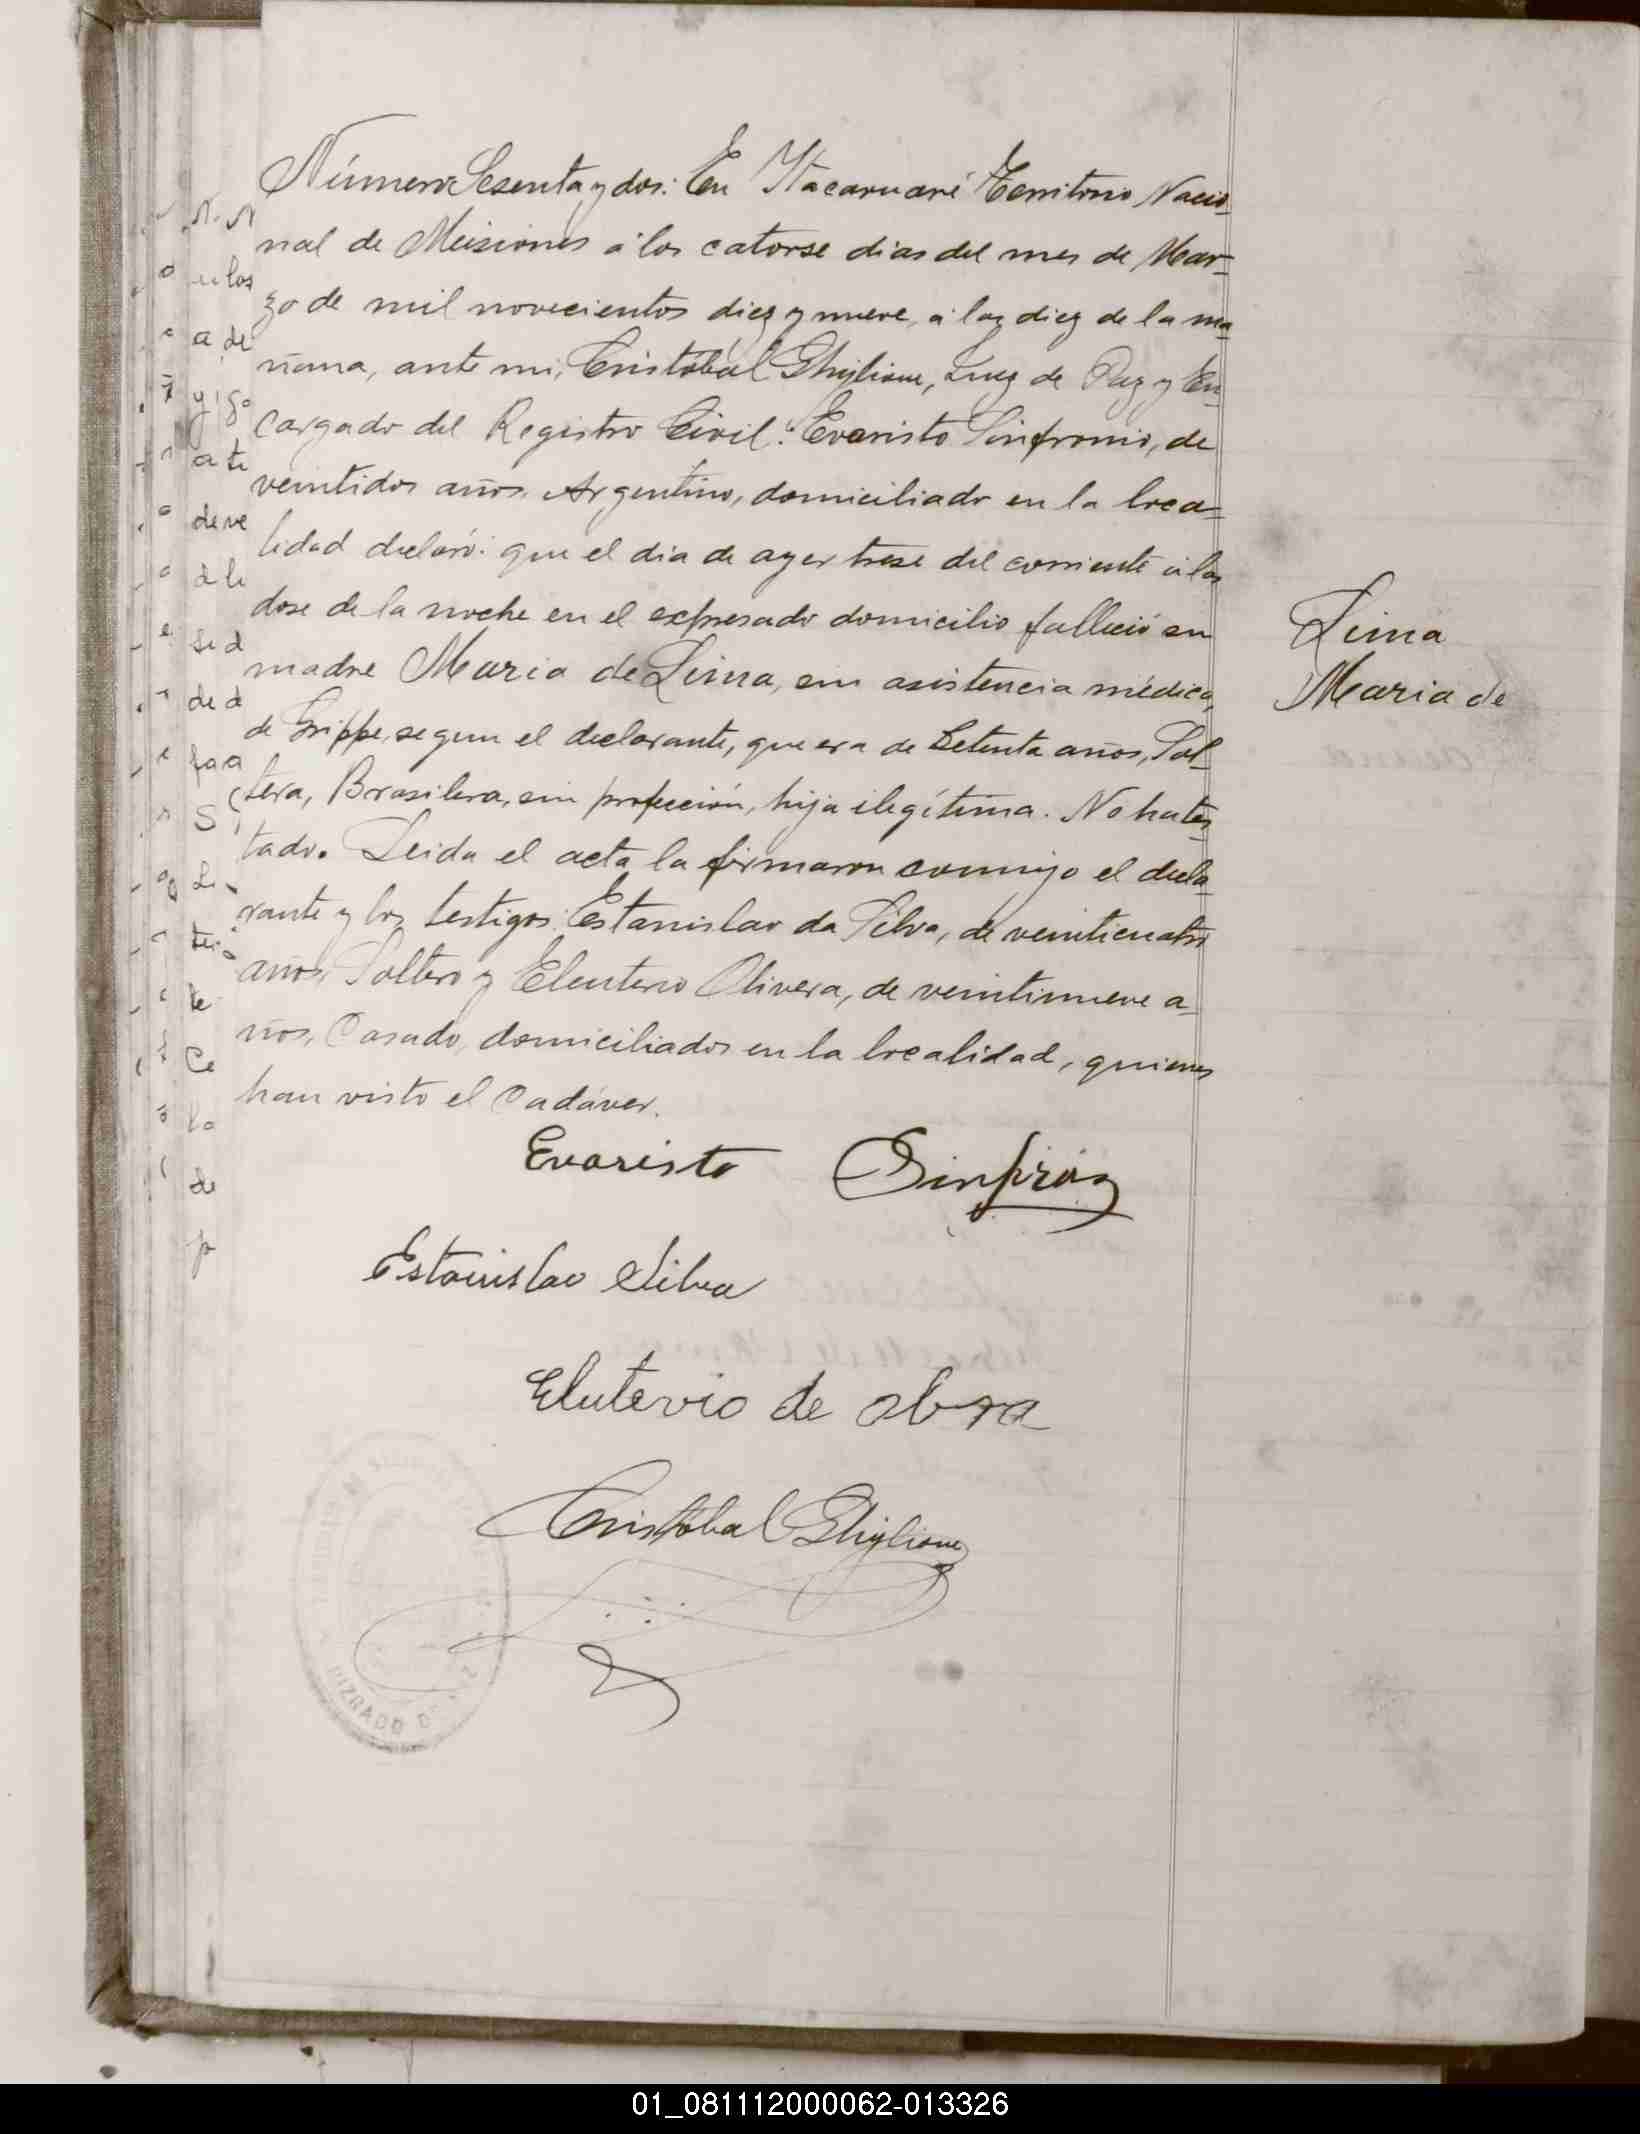 Número Sesenta y dos: En Itacaruaré Territorio Nacio-
nal de Misiones á los catorse dias del mes de Mar-
zo de mil novecientos diez y nueve, á las diez de la ma-
ñana, ante mi, Cristóbal Ghiglione, Juez de Paz y En-
cargado del Registro Civil: Evaristo Sinfronio, de
veintidos años, Argentino, domiciliado en la loca-
lidad declaró: que el dia de ayer trese del corriente á las
dose de la noche en el expresado domicilio falleció su
madre Maria de Lima, sin asistencia médica,
de Grippe, segun el declarante, que era de Setenta años, Sol-
tera, Brasilera, sin profección, hija ilegítima. No ha tes-
tado. Leida el acta la firmaron conmigo el decla-
rante y los testigos: Estanislao da Silva, de veinticuatro
años, Soltero y Eleuterio Olivera, de veintinueve a-
ños, Casado, domiciliados en la localidad, quienes
han visto el Cadáver.
Lima
Maria de
Evaristo
Estanislao Silva
Eluterio de
Cristóbal Ghiglione
JUZGADO DE PAZ
01_081112000062-013326